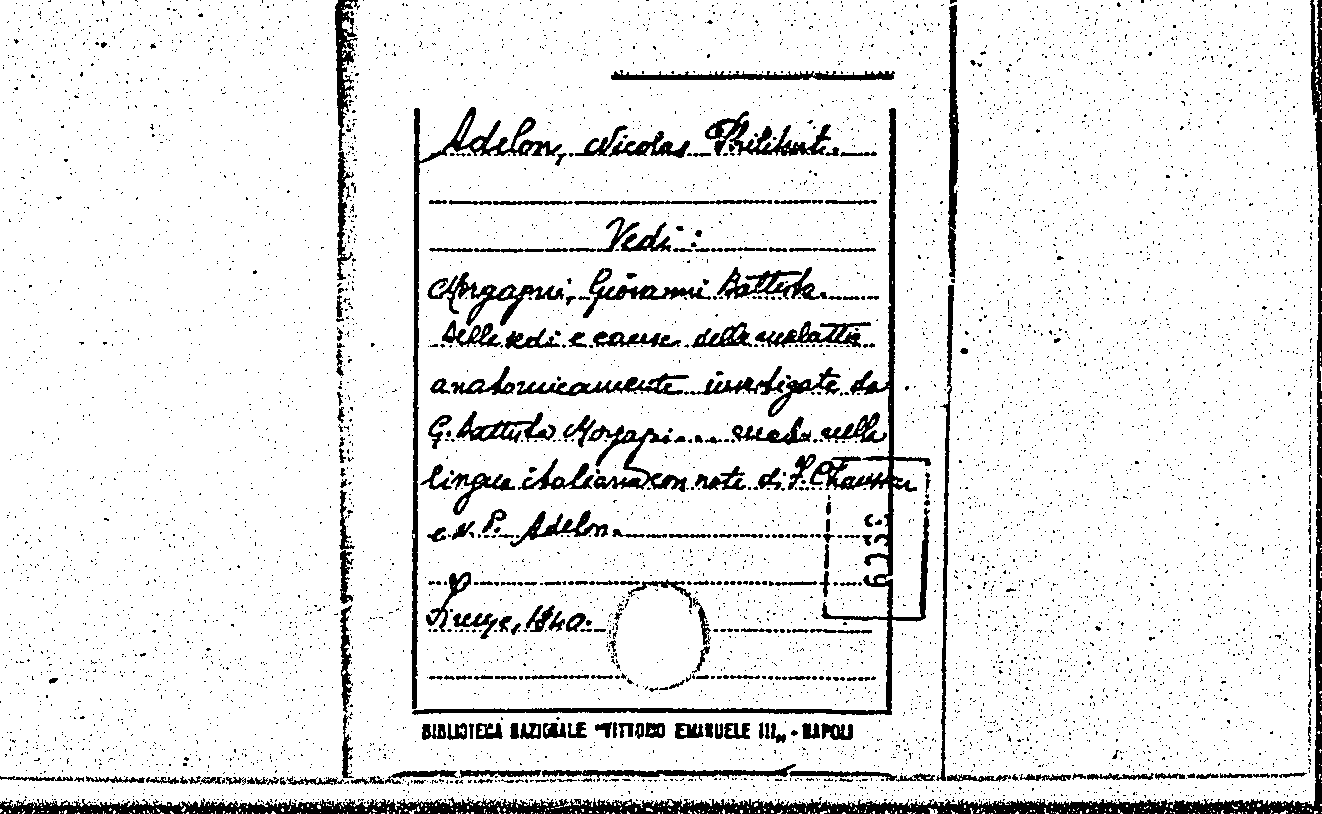 Adelon, Nicolas Philibert.
Vedi :
Morgagni, Giovanni Battista.
Delle sedi e cause delle malattie
anatomicamente investigate da
G. Battista Morgagni... nella
lingua italiana con note di F. Chaussier
e N. P. Adelon.
Firenze, 1840.
BIBLIOTECA NAZIONALE "VITTORIO EMANUELE III„ - NAPOLI